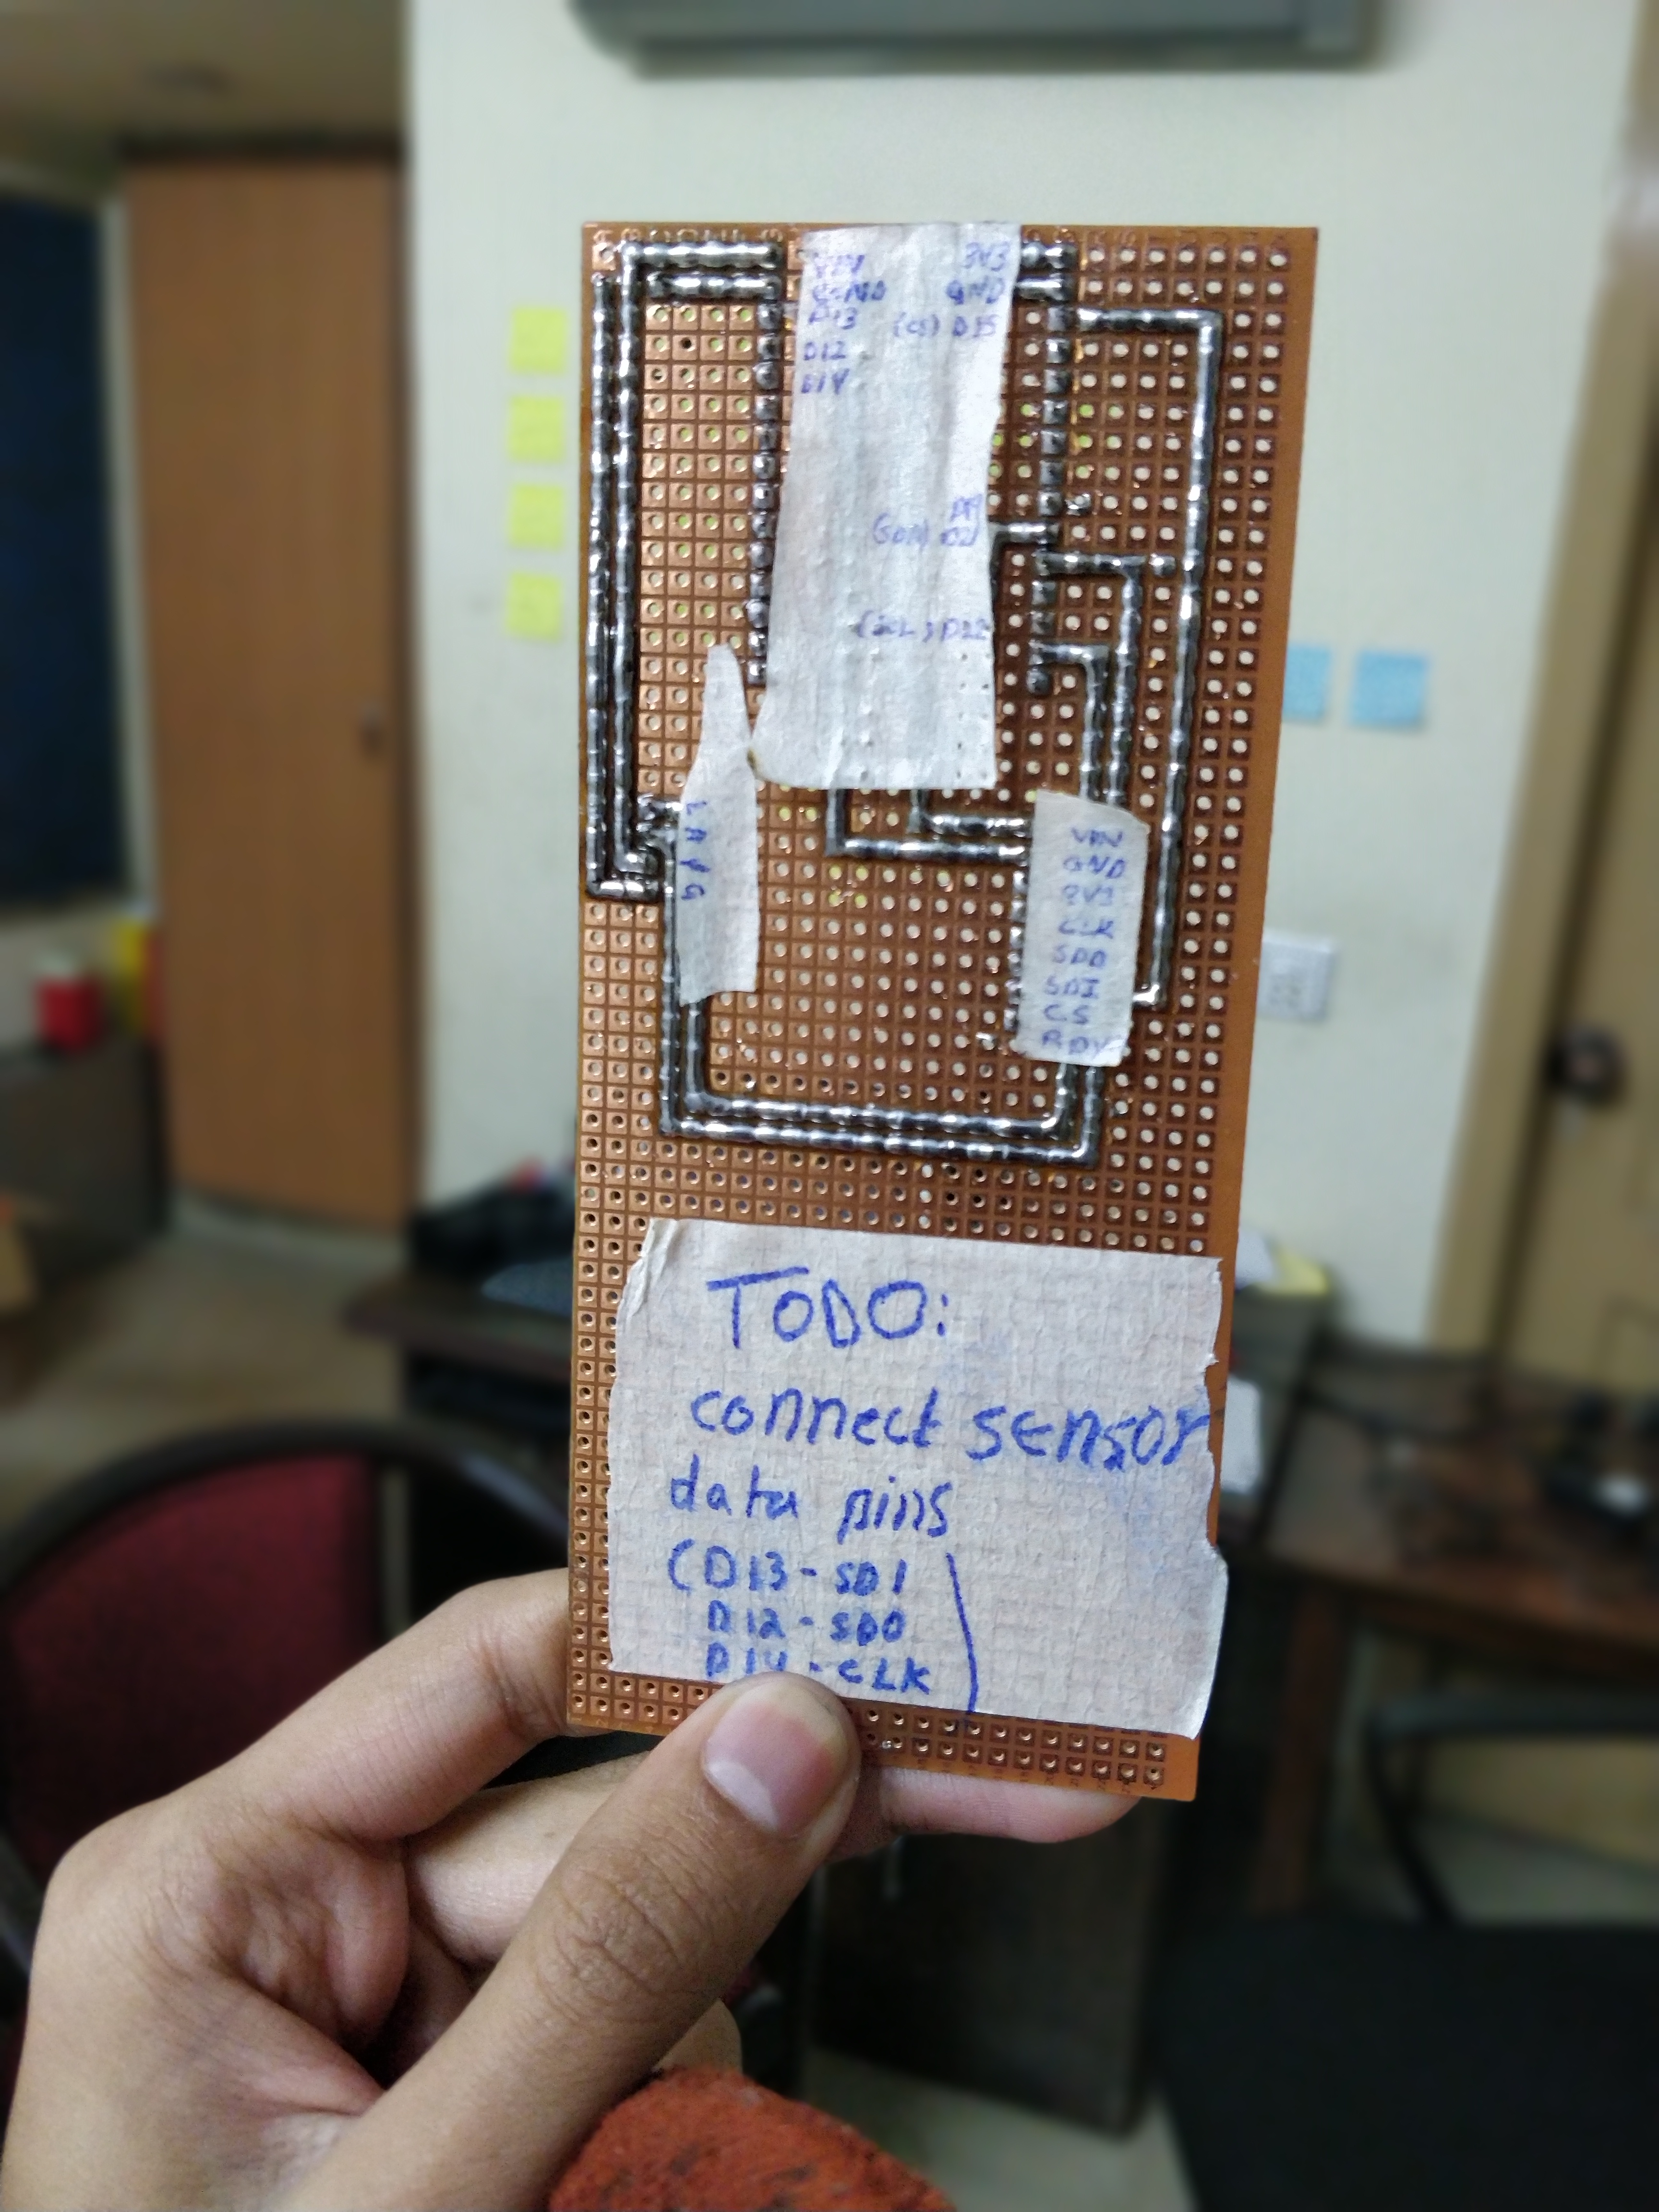 VIN 3V3
GND GND
D13 (CS) D15
D12
D14
D21
(SCL) D22
VIN
GND
3V3
CLK
SDO
SDI
CS
RDY
TODO:
connect sensor
data pins
(D13-SDI
D12-SDO
D14-CLK